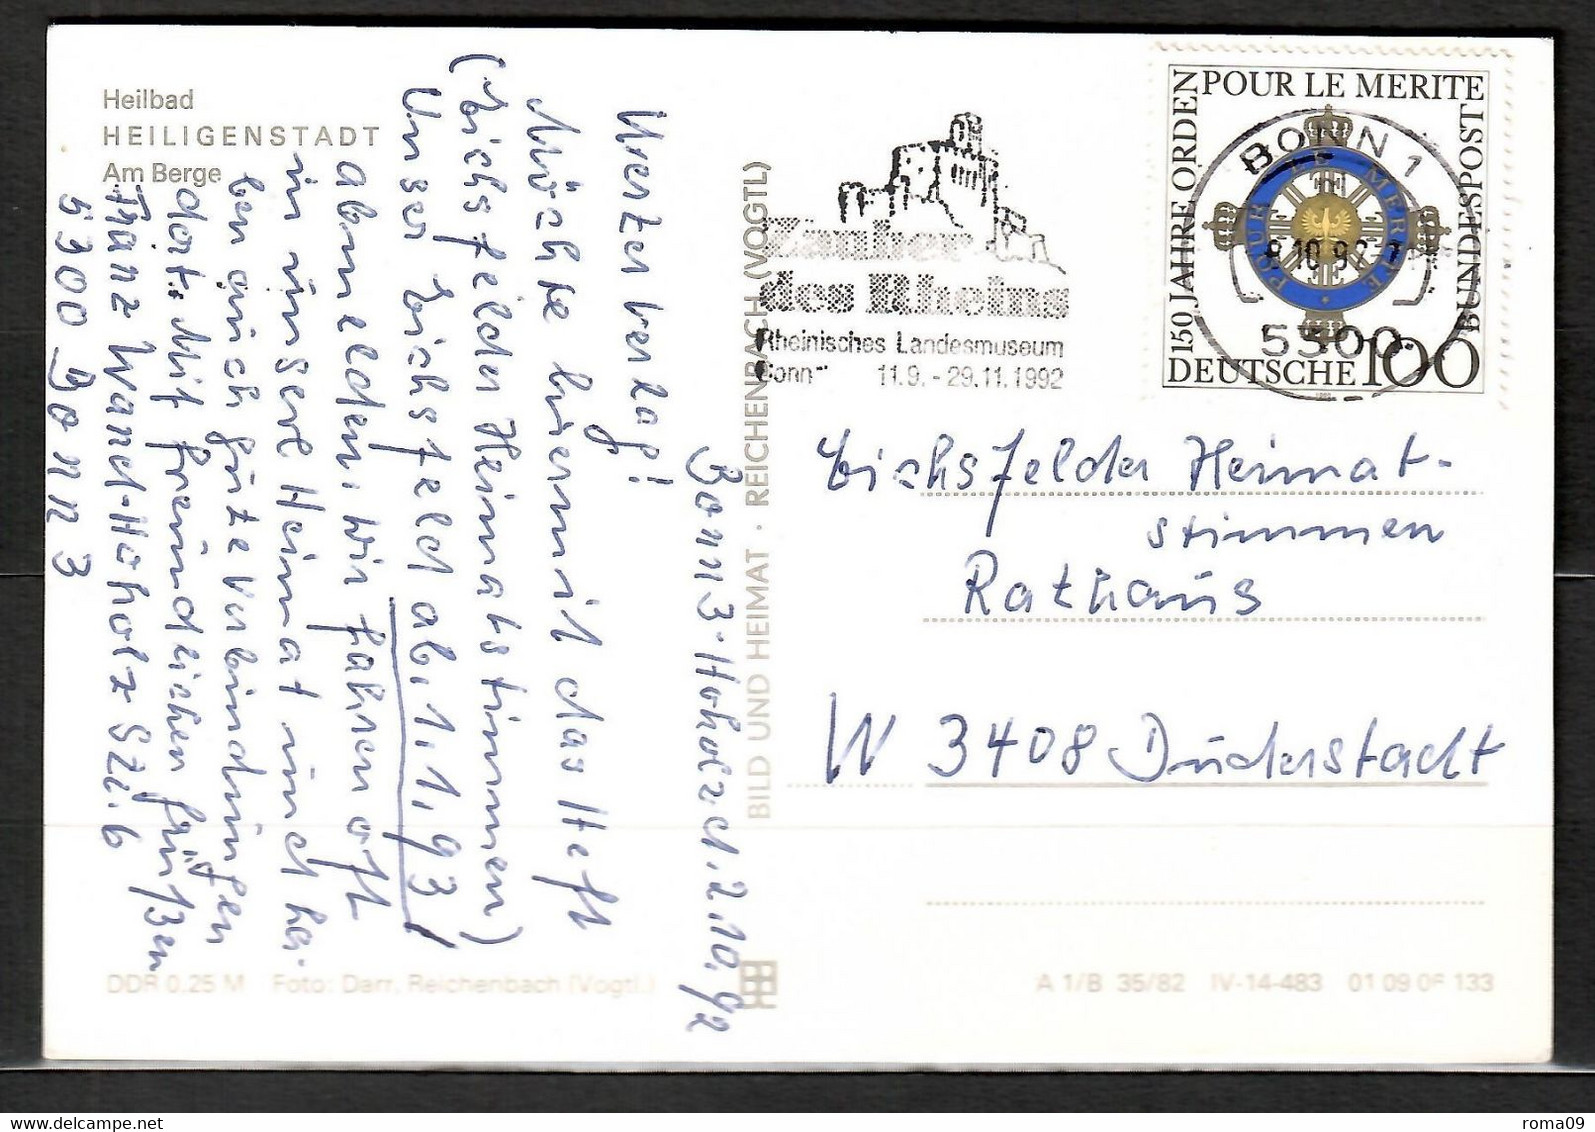 Heilbad
HEILIGENSTADT
Am Berge
Bonn 3-Hoholz d. 2.10.92
Werter Verlag!
Möchte hiermit das Heft
(Eichsfelder Heimatstimmen)
Unser Eichsfeld ab 1.1.93!
abmelden, wir fahren oft
in unsere Heimat und ha-
ben auch gute Verbindungen
dort. Mit freundlichen Grüßen
Franz Wand-Hoholz
5300 Bonn 3
DDR 0,25 M Foto: Darr, Reichenbach (Vogtl.)
BILD UND HEIMAT · REICHENBACH (VOGTL)
A 1/B 35/82 IV-14-483 01 09 06 133
Zauber
des Rheins
Rheinisches Landesmuseum
Bonn 11.9. - 29.11.1992
150 JAHRE ORDEN
POUR LE MERITE
BUNDESPOST
DEUTSCHE 100
POUR LE MERITE
BONN 1
5300
Eichsfelder Heimat-
stimmen
Rathaus
W 3408 Duderstadt
roma09